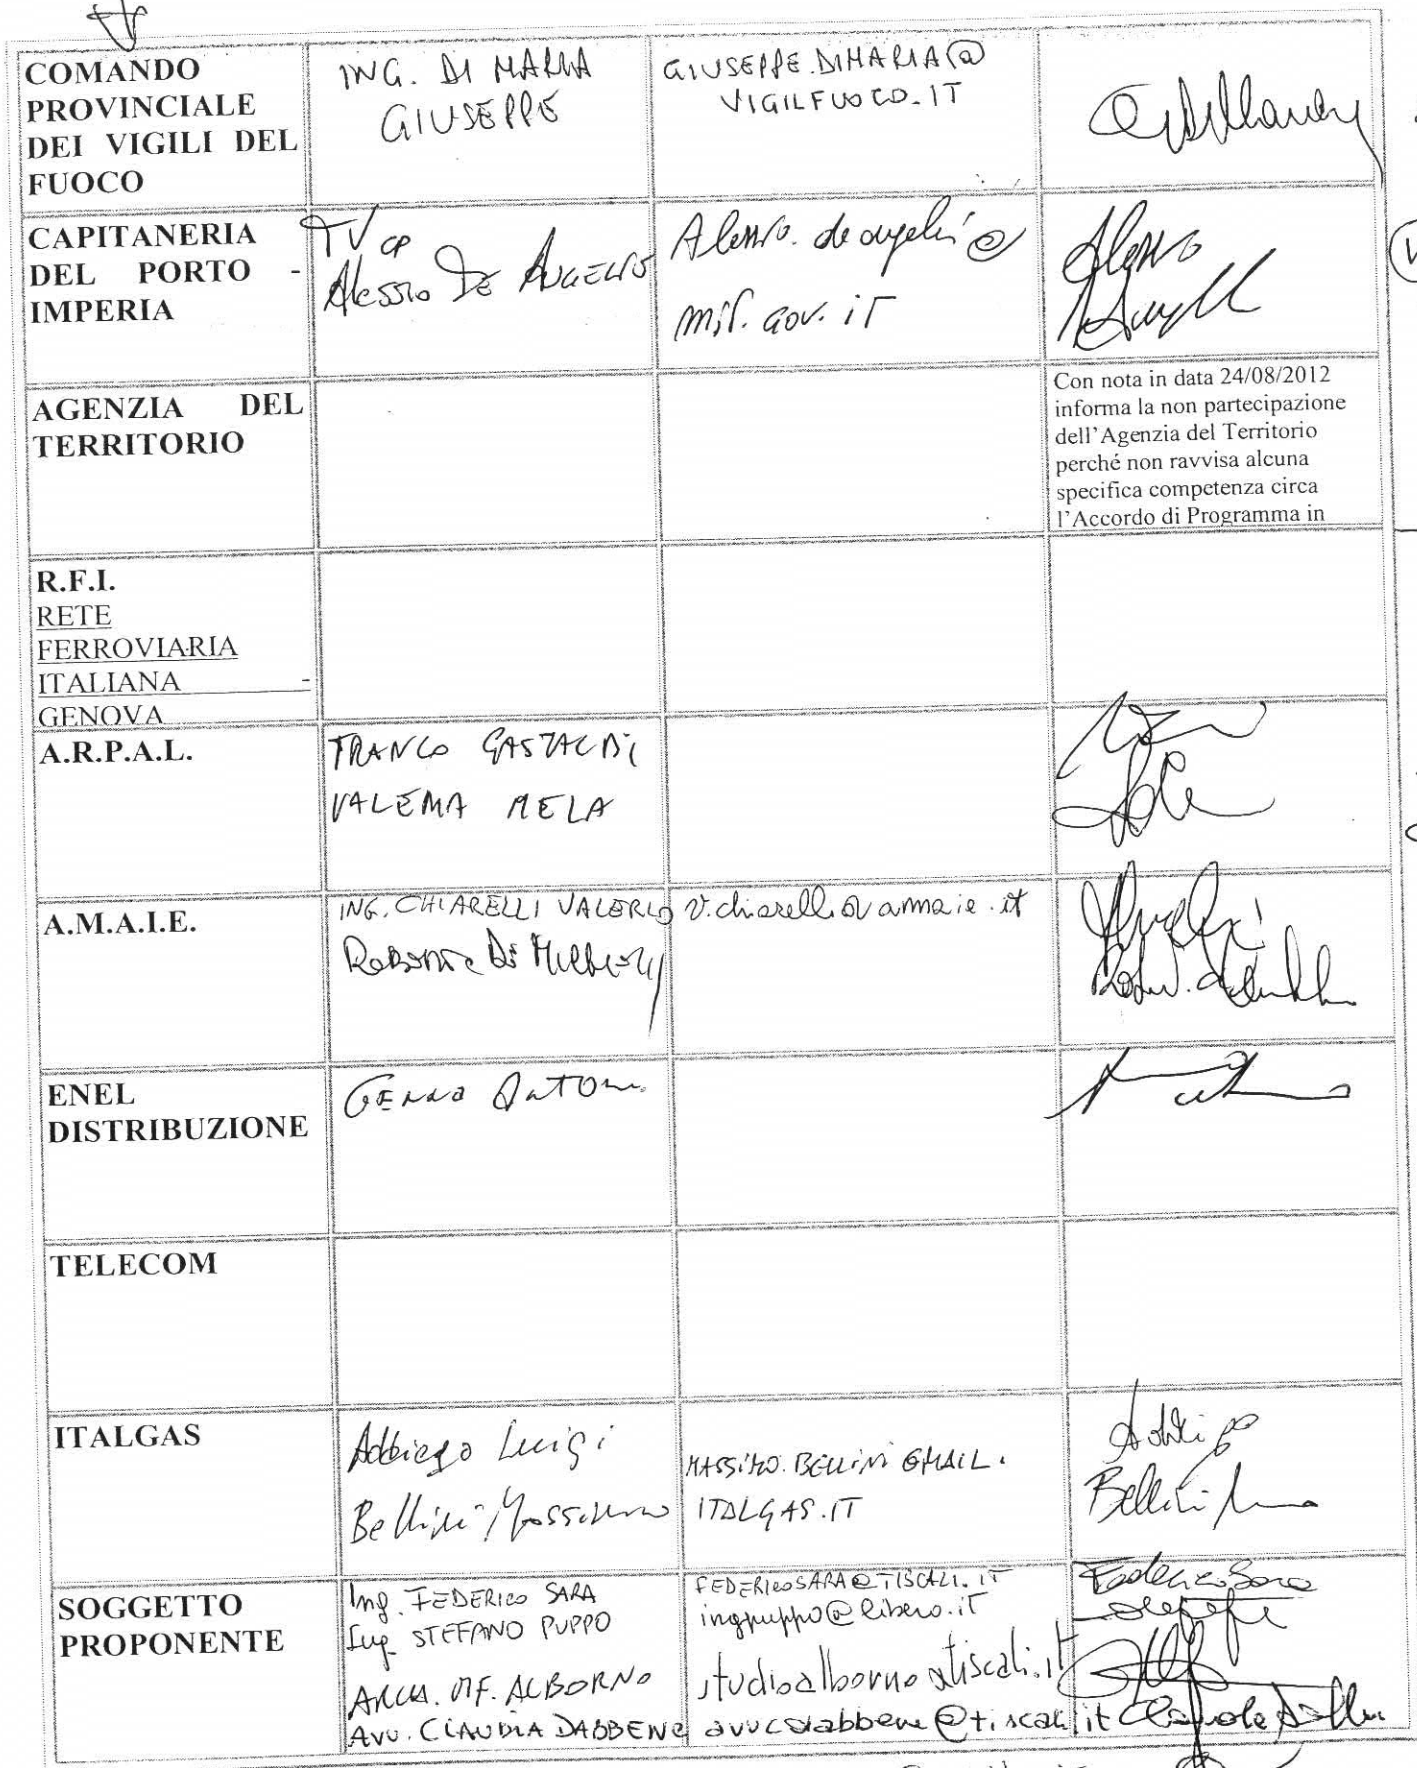 COMANDO
PROVINCIALE
DEI VIGILI DEL
FUOCO
ING. DI MARIA
GIUSEPPE
GIUSEPPE.DIMARIA@
VIGILFUOCO.IT
CAPITANERIA
DEL PORTO -
IMPERIA
TV CP
Alessio De Angelis
Alessio.deangelis@
mit.gov.it
AGENZIA DEL
TERRITORIO
Con nota in data 24/08/2012
informa la non partecipazione
dell'Agenzia del Territorio
perché non ravvisa alcuna
specifica competenza circa
l'Accordo di Programma in
R.F.I.
RETE
FERROVIARIA
ITALIANA -
GENOVA
A.R.P.A.L.
FRANCO GASTALDI
VALERIA MELA
A.M.A.I.E.
ING. CHIARELLI VALERIO
v.chiarelli@amaie.it
ENEL
DISTRIBUZIONE
TELECOM
ITALGAS
Abbiego Luigi
Bellini Massimo
MASSIMO.BELLINI GMAIL.
ITALGAS.IT
Bellini
SOGGETTO
PROPONENTE
Ing. FEDERICO SARA
Ing. STEFANO PUPPO
ARCH. M.F. ALBORNO
AVV. CLAUDIA DABBENE
FEDERICOSARA@TISCALI.IT
ingpuppo@libero.it
studioalborno@tiscali.it
avvcdabbene@tiscali.it
Federico Sara